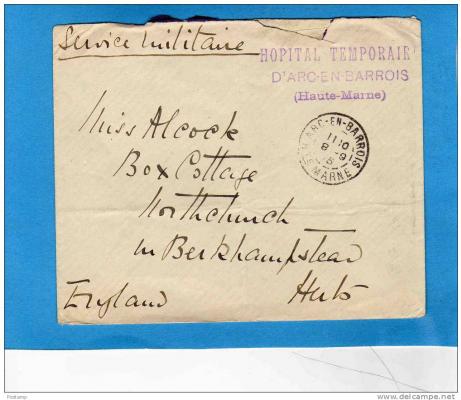 Service militaire
HOPITAL TEMPORAIR
D'ARC-EN-BARROIS
(Haute-Marne)
ARC-EN-BARROIS
11:10
8 -9
MARNE
Miss Alcock
Box Cottage
Northchurch
in Berkhampstead
England Herts
Postamp
www.delcampe.net